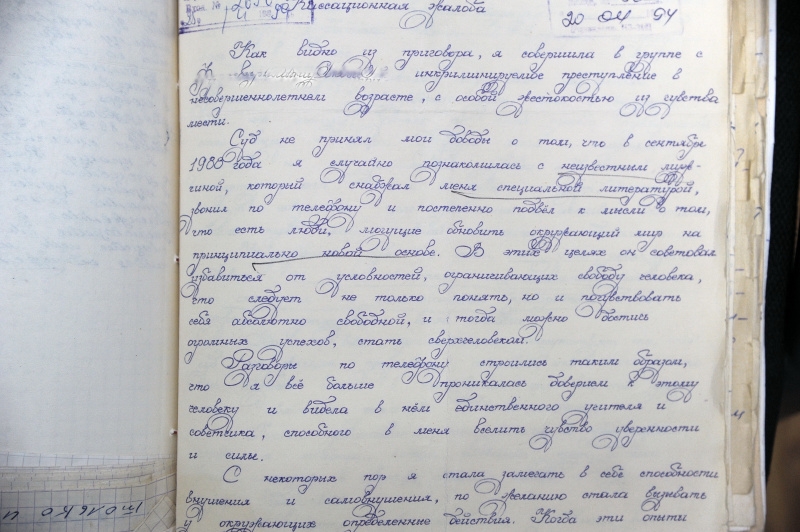 Кассационная жалоба
20 04 94
Как видно из приговора, я совершила в группе с
инкриминируемое преступление в
несовершеннолетнем возрасте, с особой жестокостью из чувства
мести.
Суд не принял мои доводы о том, что в сентябре
1988 года я случайно познакомилась с неизвестным муж-
чиной, который снабжал меня специальной литературой,
звонил по телефону и постепенно подвёл к мысли о том,
что есть люди, могущие обновить окружающий мир на
принципиально новой основе. В этих целях он советовал
избавиться от условностей, ограничивающих свободу человека,
что следует не только понять, но и почувствовать
себя абсолютно свободной, и тогда можно достичь
огромных успехов, стать сверхчеловеком.
Разговоры по телефону строились таким образом,
что я всё больше проникалась доверием к этому
человеку и видела в нём единственного учителя и
советчика, способного в меня вселить чувство уверенности
и силы.
С некоторых пор я стала замечать в себе способности
внушения и самовнушения, по желанию стала вызывать
у окружающих определённые действия. Когда эти опыты
только и